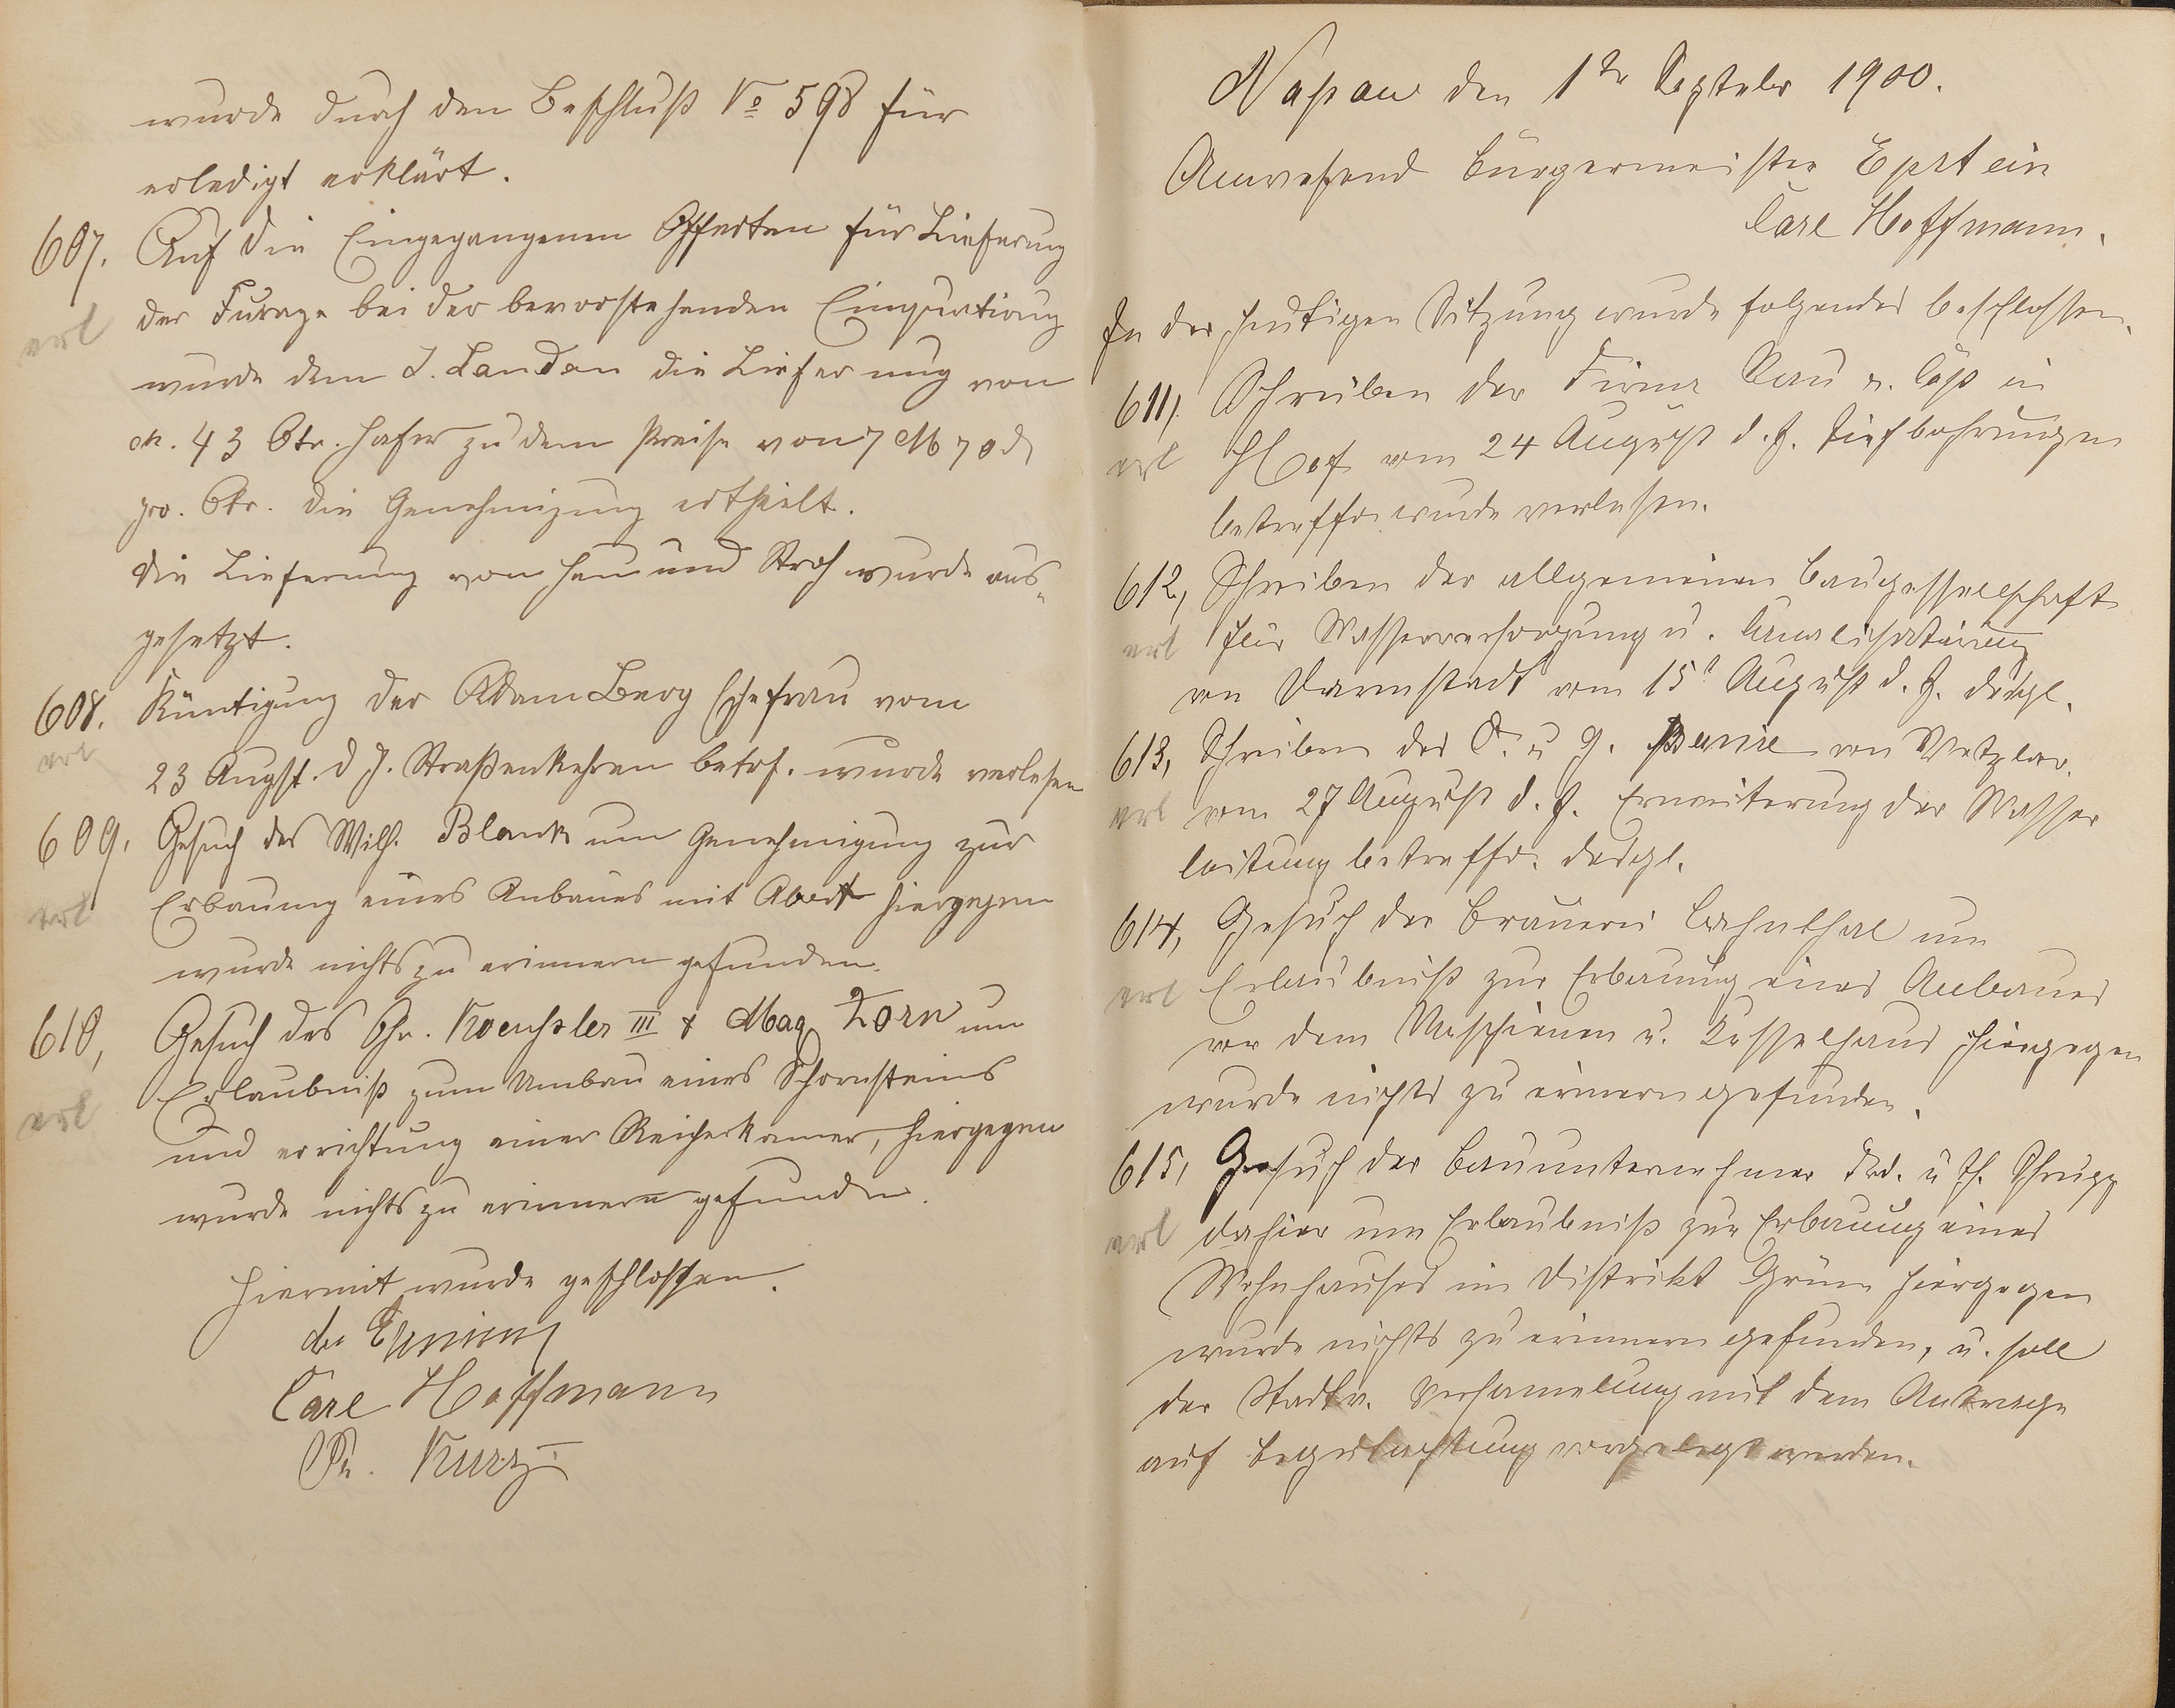 wurde durch den Beschluß No 598 für
erledigt erklärt.
607. Auf die Eingegangenen Offerten für Lieferung
erl der Furage bei der bevorstehenden Einquatirung
wurde dem J. Landau die Lieferung von
ca. 43 Ctr. Hafer zu dem Preise von 7 M 70 d
pro. Ctr. die Genehmigung ertheilt.
die Lieferung von Heu und Stroh wurde aus-
gesetzt.
608. Küntigung der Adam Berg Ehefrau vom
erl 23 Augst. d J. Straßenkehren betrf. wurde verlesen
609. Gesuch des Wilh. Blank um Genehmigung zur
erl Erbauung eines Anbaues mit Abort hiergegen
wurde nichts zu erinnern gefunden.
610, Gesuch des Chr. III & Mag. Zorn um
erl Erlaubniß zum Umbau eines Schornsteins
und errichtung einer Reicherkamer, hiergegen
wurde nichts zu erinnern gefunden.
Hiermit wurde geschlossen.
Carl Hoffmann
Kurz
Naßau den 1tn Septbr 1900.
Anwesend Bürgermeister Epstein
Carl Hoffmann.
In der heutigen Sitzung wurde folgendes beschlossen.
611, Schreiben der Firma in
erl Hof vom 24 August d. J. Tiefbohrungen
betreffd wurde verlesen.
612, Schreiben der allgemeinen Baugesselschaft
erl für Wasserversorgung u. Canalisatirung
von Darmstadt vom 15t August d. J. desgl.
613, Schreiben des u von Wetzlar.
erl vom 27 August d. J. Erweiterung der Wasser
leitung betreffd. desgl.
614, Gesuch der Brauerei Lahnthal um
erl Erlaubniß zur Erbauung eines Anbaues
vor dem Maschienen u. Kesselhaus hiergegen
wurde nichts zu erinnern gefunden.
615, Gesuch der Bauunternehmer u
erl dahier um Erlaubniß zur Erbauung eines
Wohnhauses im Distrikt Grün hiergegen
wurde nichts zu erinnern gefunden, u. soll
der Stadtv. Versamelung mit dem Antrage
auf Begutachtung vorgelegt werden.